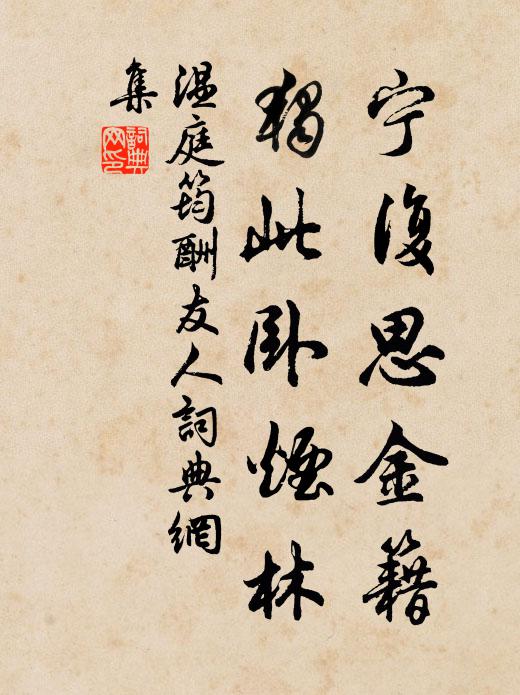 宁復思金籍
獨此卧煙林
温庭筠酬友人詞典網
集
詞典网印